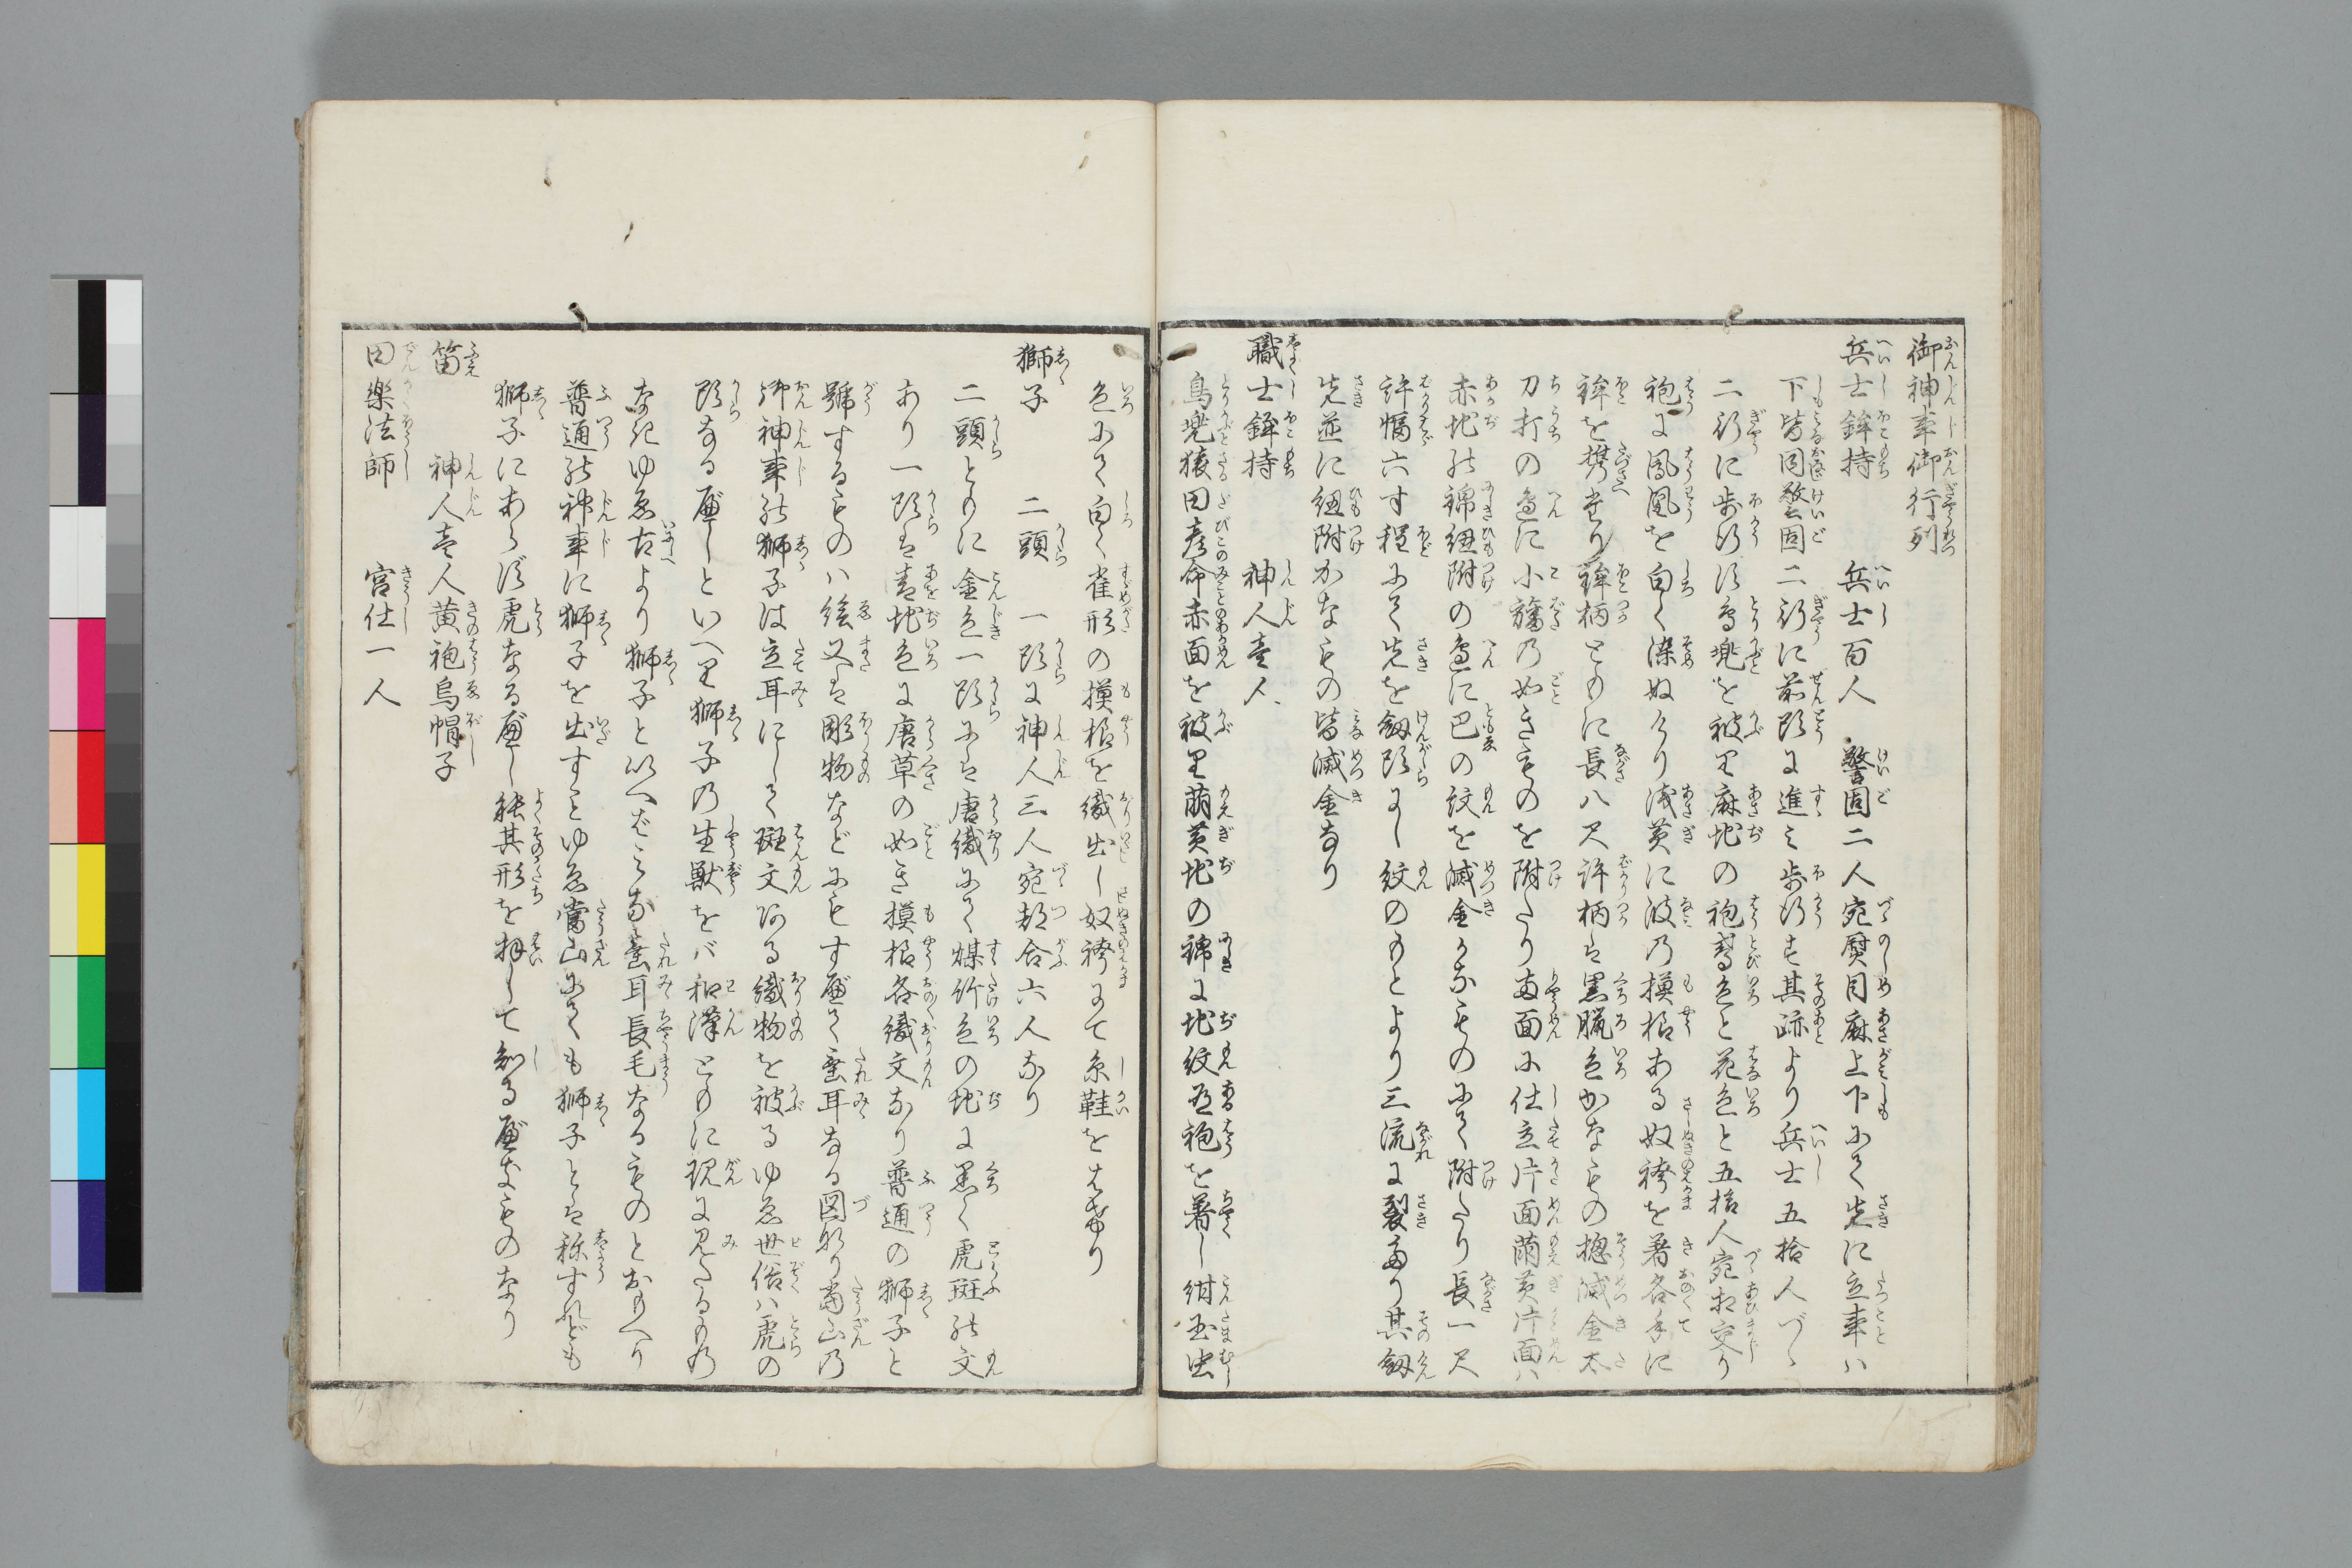 御神事御行列
兵士鉾持　兵士百人　警固二人宛熨目麻上下にて先に立事ハ
下皆同警固二行に前頭に進ミ歩行す其跡より兵士五拾人づゝ
二行に歩行す鳥兜を被り麻地の袍鳶色と花色と五拾人宛相交り
袍に鳳凰を白く染ぬけり浅黄に波の模様ある奴袴を着各手に
鉾を携たり鉾柄ともに長八尺許柄は黒臘色かなもの惣滅金太
刀打の邊に小旛の如きものを附たり両面に仕立片面萠黄片面ハ
赤地の錦紐附の邊に巴の紋を滅金かなものにて附たり長一尺
許幅六寸程にて先を劔頭にし紋のもとより三流に裂たり其劔
先並に紐附かなもの皆滅金なり
職士鉾持　神人壱人
鳥兜猿田彦命赤面を被り萠黄地の錦に地紋有袍を着し紺玉虫
色にて白く雀形の模様を織出し奴袴にて糸鞋をはけり
獅子　二頭　一頭に神人三人宛都合六人なり
二頭ともに金色一頭には唐織にて煤竹色の地に黒く虎斑の文
あり一頭は青地色に唐草の如き模様各織文なり普通の獅子と
號するものハ絵又は彫物などにもす応て垂耳なる図なり當山乃
御神事の獅子は立耳にして斑文ある織物を被るゆゑ世俗ハ虎の
頭なる応しといへり獅子の生獣をバ和漢ともに現に見たるもの
なきゆゑ古より獅子といへばミな垂耳長毛なるものとおもへり
普通の神事に獅子を出すことゆゑ當山にても獅子とは称すれども
獅子にあらず虎なる応し能其形を拝して知る応きものなり
笛　神人壱人黄袍烏帽子
田楽法師　宮仕一人